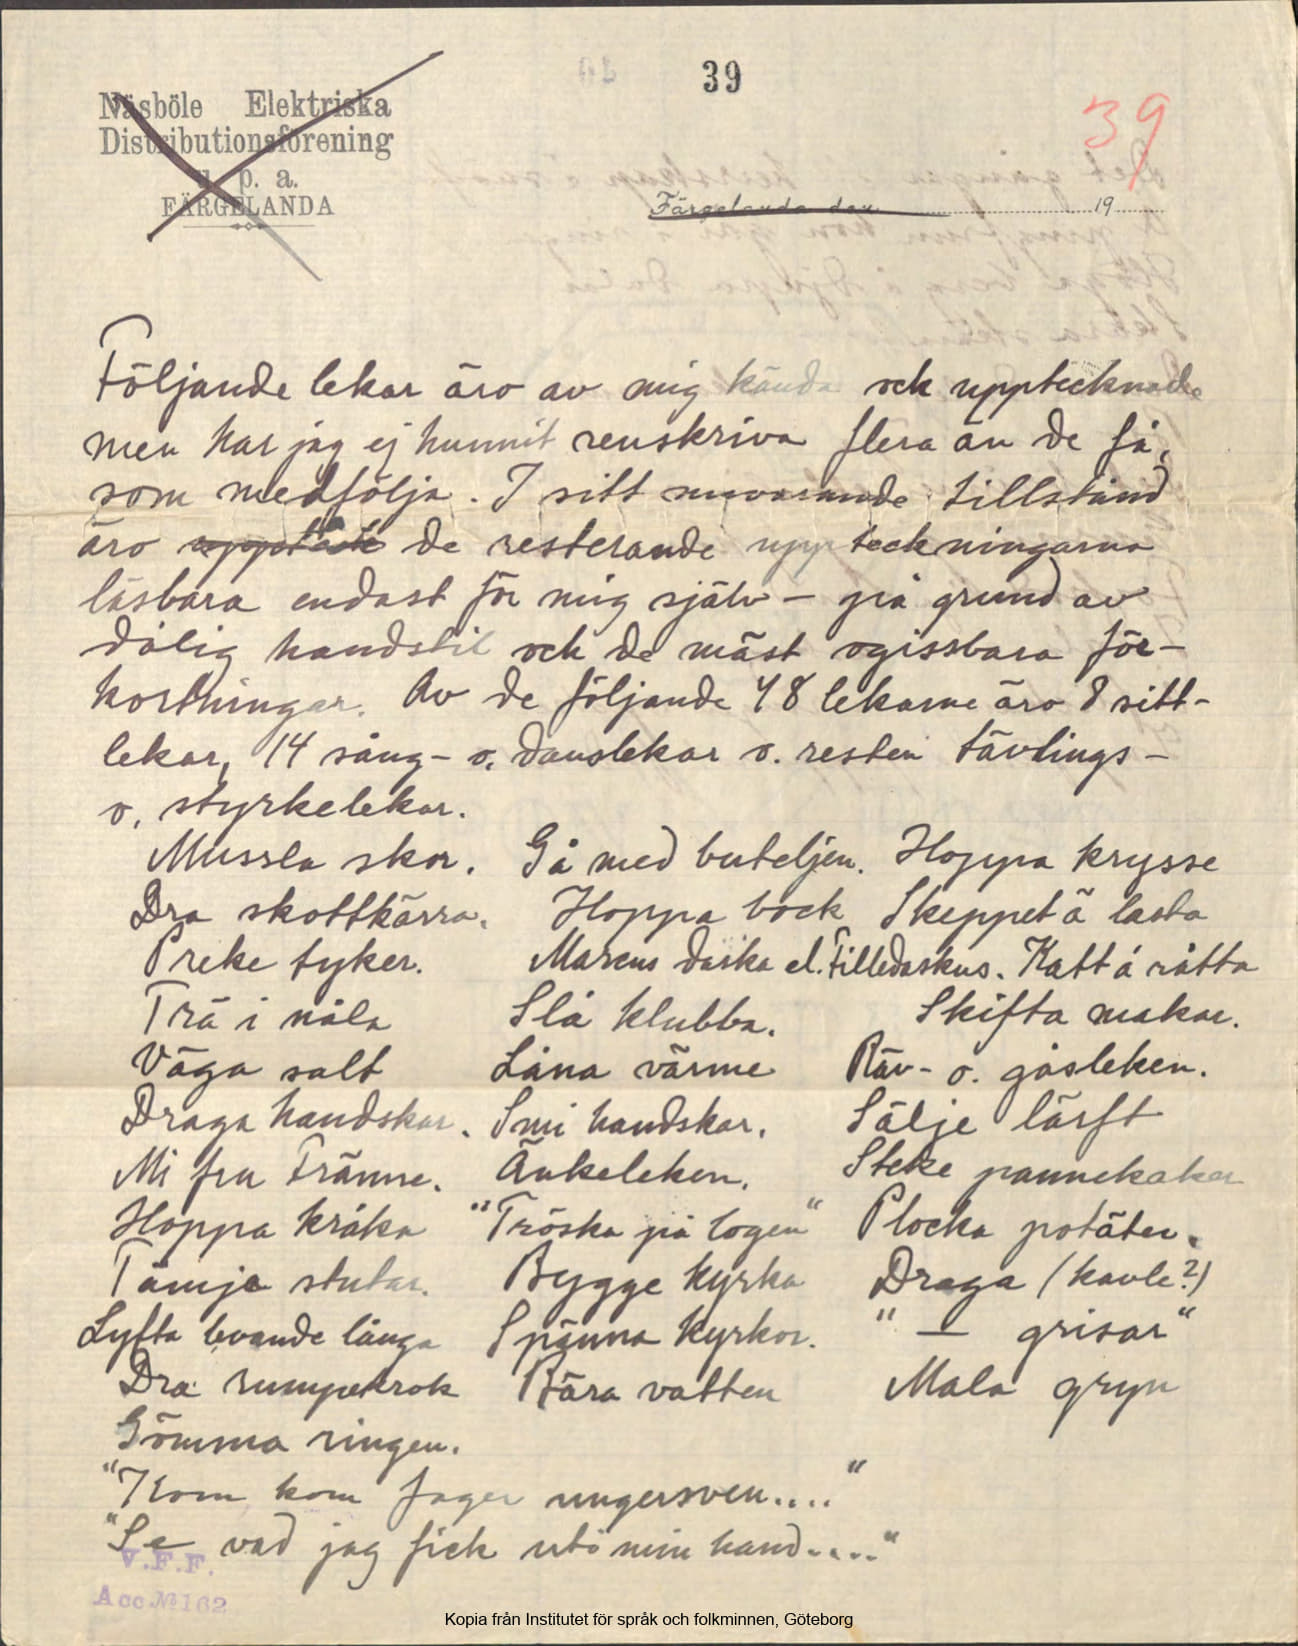 39
39
Näsböle Elektriska
Distributionsförening
u. p. a.
FÄRGELANDA
Färgelanda den 19
Följande lekar äro av mig kända ock upptecknade
men har jag ej hunnit renskriva flera än de få,
som medfölja. I sitt nuvarande tillstånd
äro de resterande uppteckningarna
läsbara endast för mig själv – på grund av
dålig handstil ock de mäst ogissbara för-
kortningar. Av de följande 48 lekarne äro 8 sitt-
lekar, 14 sång- o. danslekar o. resten tävlings-
o. styrkelekar.
Mussla skor. Gå med buteljen. Hoppa krysse
Dra skottkärra. Hoppa bock Skeppet ä lasta
Preke tyker. Marcus daska el. Filledaskus. Katt å råtta
Trä i nåla Slå klubba. Skifta makar.
Väga salt Låna värme Räv- o. gåsleken.
Draga handskar. Smi handskar. Sälje lärft
Mi fru Tränne. Änkeleken. Steke pannekaker
Hoppa kråka "Tröska på logen" Plocka potäter.
Tämja stutar. Bygge kyrka Draga (kavle?)
Lyfta levande långa Spänna kyrkor. " — grisar"
Dra rumpekrok Bära vatten Mala gryn
Gömma ringen.
"Kom kom fager ungersven...."
"Se vad jag fick uti min hand...."
V.F.F.
Acc. № 162
Kopia från Institutet för språk och folkminnen, Göteborg